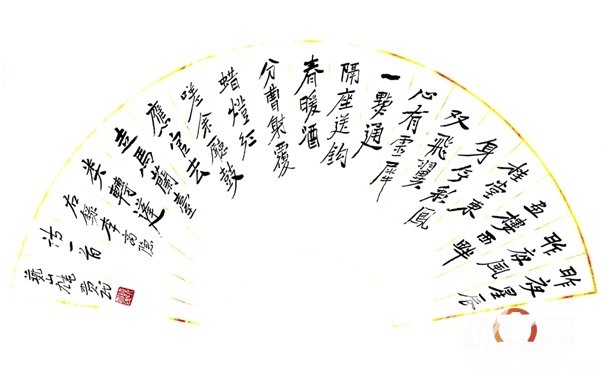 昨夜星辰
昨夜風
画樓西畔
桂堂東
身无彩鳳
双飛翼
心有霊犀
一點通
隔座送鈎
春暖酒
分曹射覆
蜡燈紅
嗟余聽鼓
應官去
走馬蘭臺
类轉蓬
右錄李商隱
诗一首